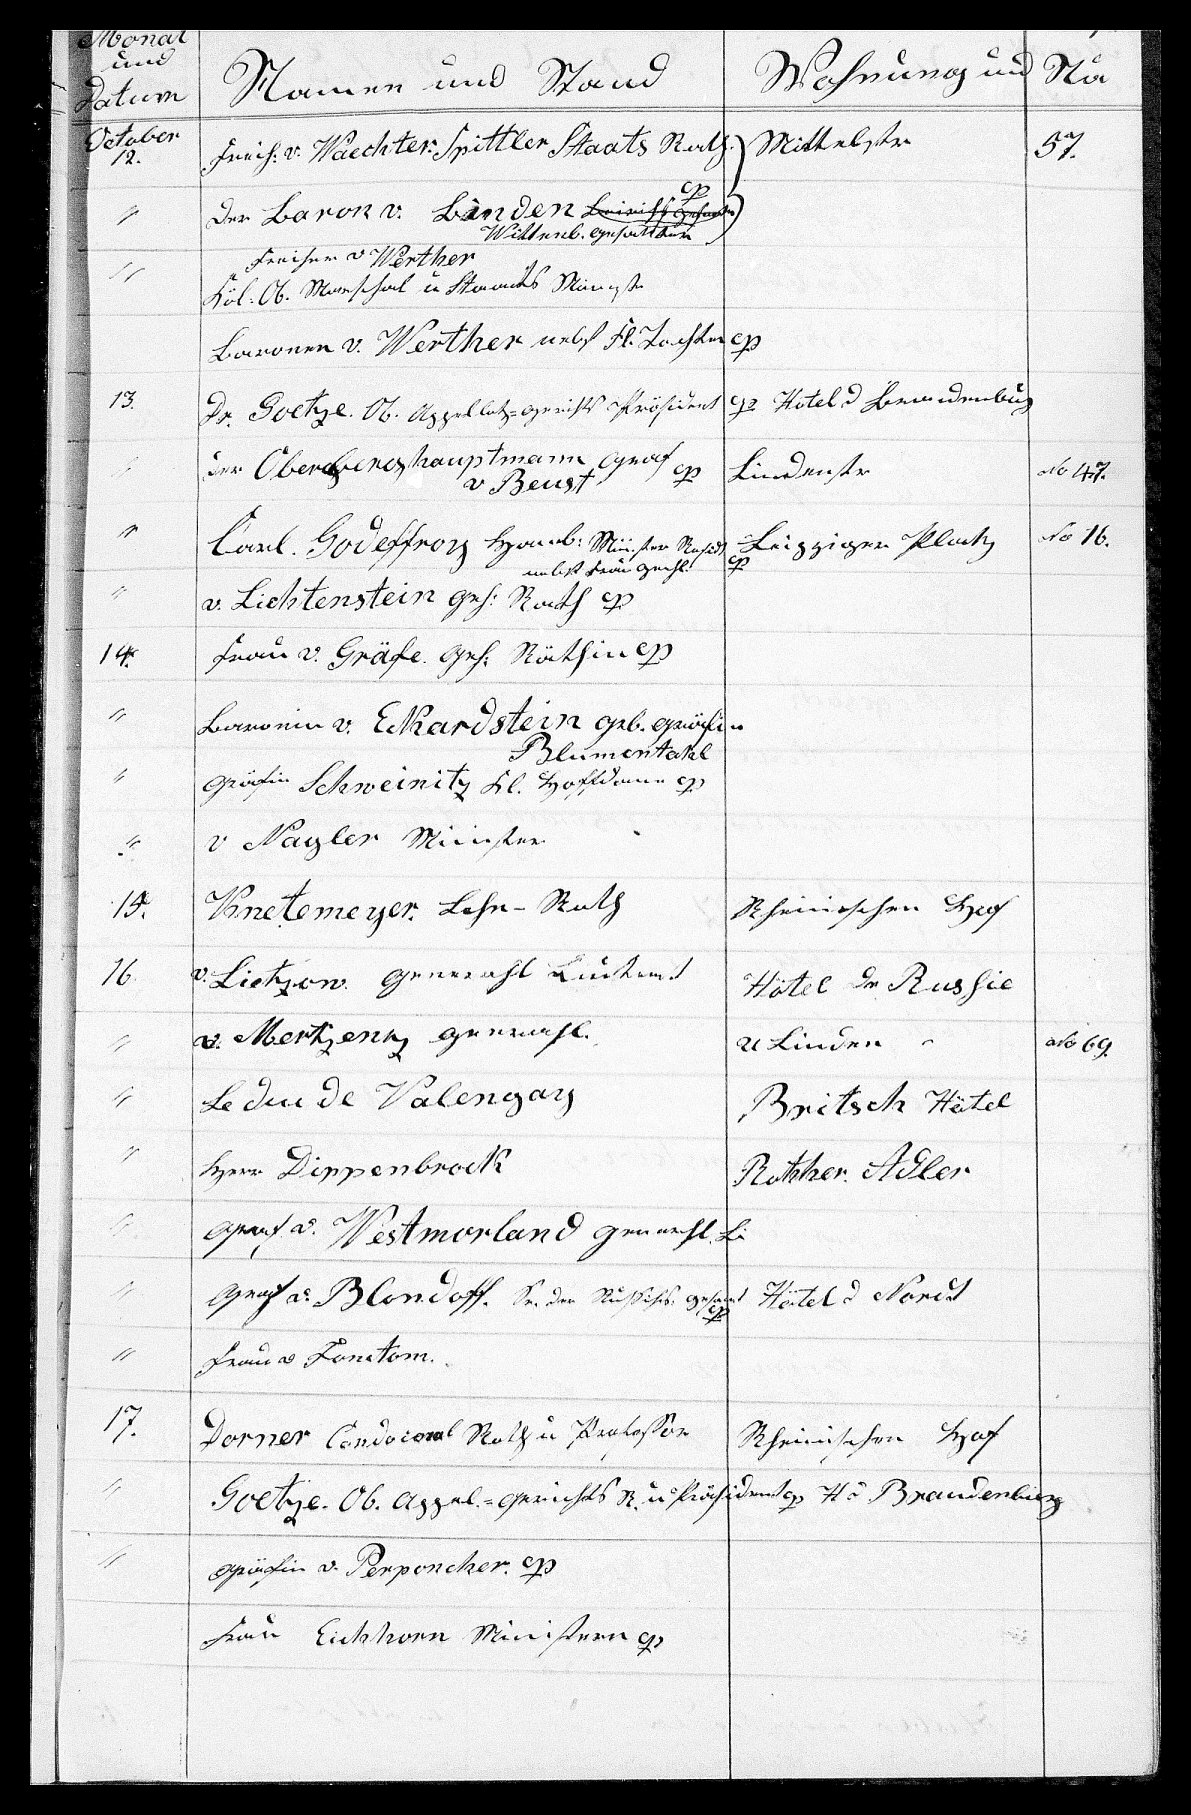 Monat
und
Datum
Namen und Stand
Wohnung und Nu
October
12. Freih: v. Waechter. Spittler Staats Rath. Mittelstr 57.
" Der Baron v. Linden cp
Wittenb. gesandter
" Freiher v Werther
Köl. Ob. Marschal u Staats Minist
Baronen v. Werther nebst Fl. Tochter cp
13. Dr. Goetze. Ob. Appellat=gerichts Präsident cp Hotel d Brandenbug
" der Oberberghauptmann Graf cp Lindenstr No 47.
v Beust
" Carl. Godeffroy Hamb: Minister Resid Leipziger Platz No 16.
nebst Frau Gemhl. cp
" v. Lichtenstein geh: Rath cp
14. Frau v. Gräfe. geh: Räthin cp
" Baronin v. Eckardstein geb. gräfin
Blumentahl
" Gräfin Schweinitz Kl. Hoffdame cp
" v Nagler Minister
15. Knetemeyer. Lehn-Rath Rheinischen Hof
16. v. Lietzow. Generahl Leutant Hötel de Russie
" v. Mertzenz Generahl. U Linden No 69.
" Le duc de Valengay Britsch Hötel
" Herr Dippenbrock Rother. Adler
" Graf. v. Westmorland generhl. Li
" Graf v. Blondoff. Hötel d Nordt
cp
" Frau v Fonctom.
17. Dorner Rath u Professor Rheinischen Hof
" Goetze. Ob. Appel.=Gerichts R. u Präsident cp H d Brandenburg
" Gräfin v. Perponcher. cp
Frau Eichhorn Ministern cp